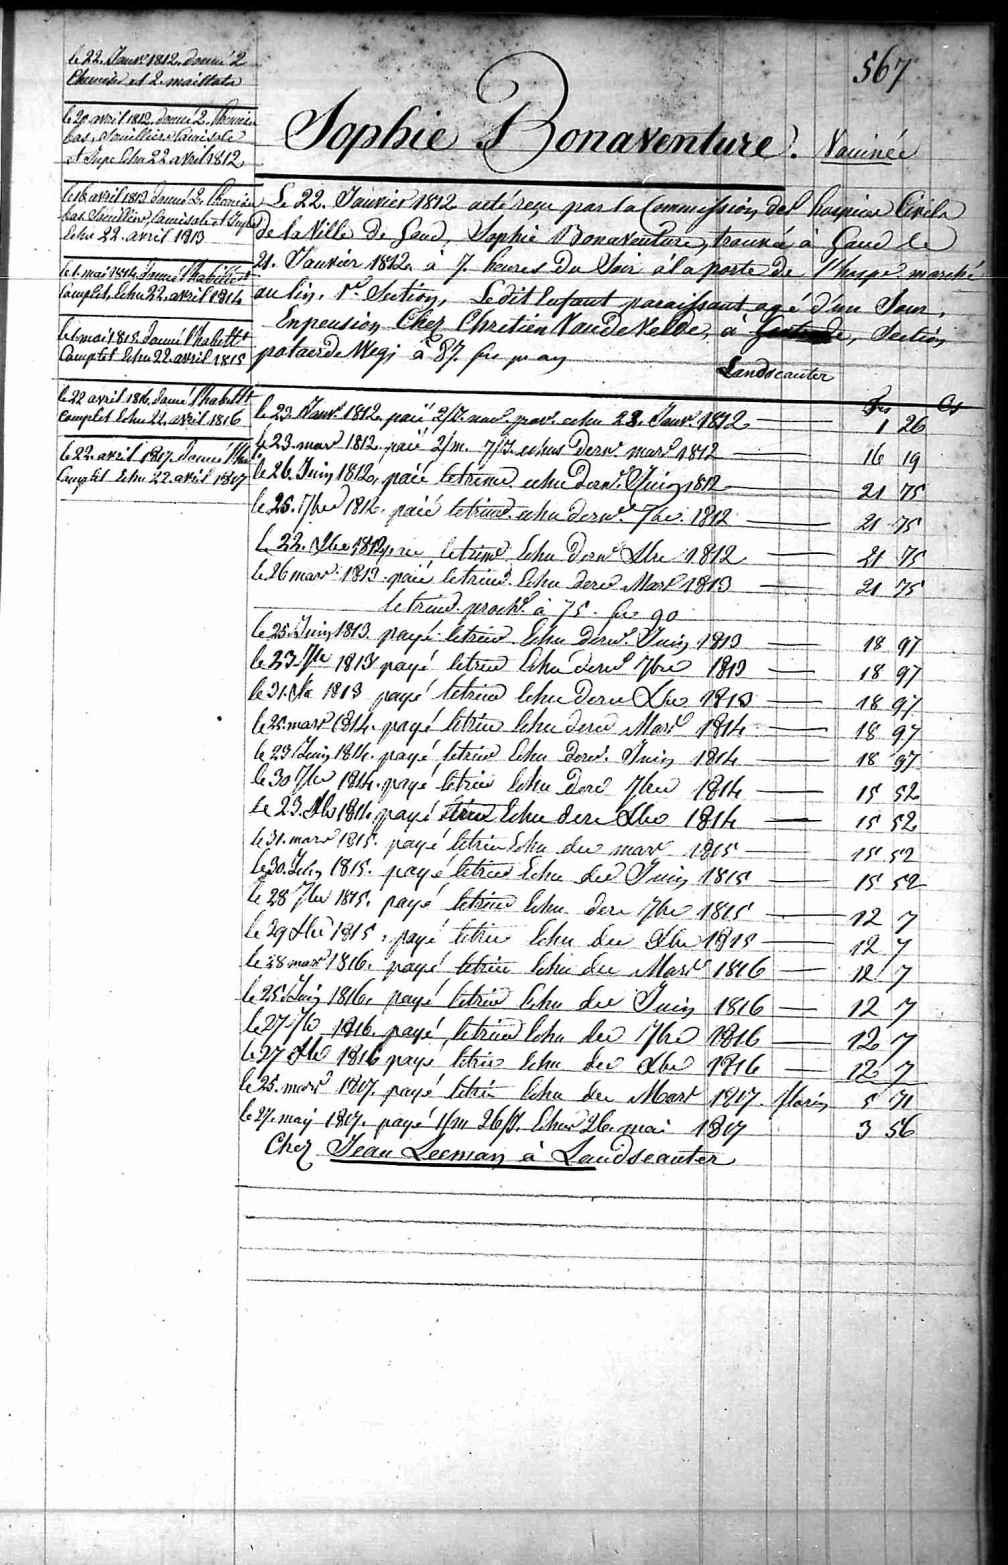 567
Sophie Bonaventure. Vaccinée
le 22. Janvr 1812. donné 2
Chemises et 2. maillots
le 20 avril 1812. donné 2. Chemises
bas, Souilliers Camisole
et Jupe Echu 22 avril 1812
le 16 avril 1813 donné 2. Chemises
bas Souilliers, Camisole et Jupe
Echu 22. avril 1813
le 1. mai 1814. donné l'habillt
Complet, Echu 22. avril 1814
le 1 mai 1815. donné l'habillt
Complet Echu 22. avril 1815
le 22 avril 1816. donné l'habillt
Complet Echu 22. avril 1816
le 22. avril 1817. donné l'
Complet Echu 22. avril 1817
Le 22. Janvier 1812 acte reçu par la Commission des hospices Civils
de la Ville de Gand, Sophie Bonaventure, trouvée à Gand le
21. Janvier 1812. à 7. heures du Soir à la porte de l'hospe. marché
au lin, 1e. Section, Ledit Enfant paraissant agé d'un Jour.
En pension Chez Chretien Vande Velde, à Section
à 87. frs par an
Landscauter
frs Cs
le 23. Janvr. 1812. paié Janvr. 1812 — 1 26
le 23. mars 1812. paié 2/m. 7/J. echus dernr. mars 1812 — 16 19
le 26. Juin 1812. paié letrime echu dernr. Juin 1812 — 21 75
le 25. 7bre 1812. paié letrime echu dernr. 7bre. 1812 — 21 75
le 22. Xbre 1812 paie letrime Echu dernr Xbre 1812 — 21 75
le 26 mars. 1813. paié letrime. Echu dernr Mars 1813 — 21 75
letrime. proche. à 75. frs 90
le 25. Juin 1813. payé letrime Echu dernr. Juin 1813 — 18 97
le 23 7bre 1813 payé letrime Echu dernr 7bre 1813 — 18 97
le 31. Xbre 1813 payé letrime Echu dernr Xbre 1813 — 18 97
le 25. mars 1814. payé letrime Echu dernr Mars 1814 — 18 97
le 23 Juin 1814. payé letrime Echu dernr. Juin 1814 — 18 97
le 30 7bre 1814. payé letrime Echu dernr 7bre 1814 — 15 52
Le 23. Xbre 1814. payé letrime Echu dernr Xbre 1814 — 15 52
le 31. mars 1815. payé letrime Echu der mars 1815 — 15 52
le 30. Juin 1815. payé letrime Echu der Juin 1815 — 15 52
le 28 7bre 1815. payé letrime Echu der 7bre 1815 — 12 7
le 29 Xbre 1815. payé letrime Echu der Xbre 1815 — 12 7
le 28 mars 1816. payé letrime Echu der Mars 1816 — 12 7
le 25. Juin 1816. payé letrime Echu der Juin 1816 — 12 7
le 27. 7bre 1816. payé letrime Echu der 7bre 1816 — 12 7
le 27 Xbre 1816 payé letrime Echu der Xbre 1816 — 12 7
le 25. mars 1817. payé letrime Echu der Mars 1817. florins 5 71
le 27. may 1817. payé 1/m 26/J. Echus 26. mai 1817 3 56
Chez Jean Leeman à Landscauter